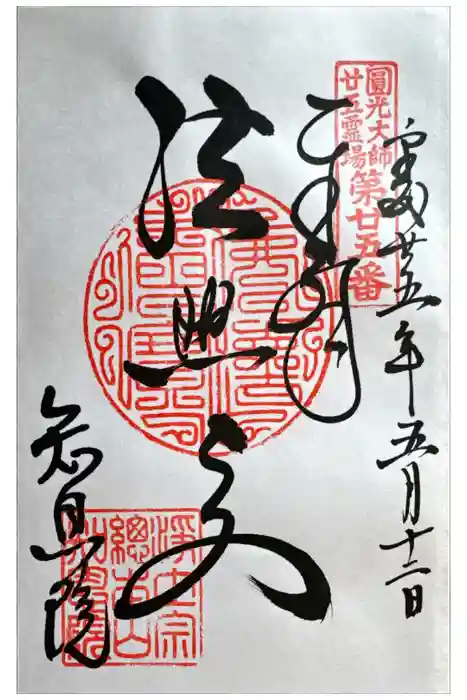 平成廿五年五月十二日
圓光大師
廿五霊場
第廿五番
奉拝
法然上人
知恩院
淨土宗
總本山
知恩院